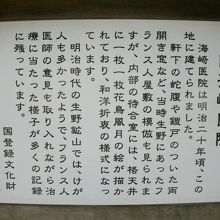 海崎医院は明治二十年頃、この
地に建てられました。
軒下の蛇腹や鎧戸のついた両
開き窓など、当時生野にあったフ
ランス人屋敷の模倣も見られま
すが、内部の待合室には、格天井
に一枚一枚花鳥風月の絵が描か
れており、和洋折衷の様式になっ
ています。
明治時代の生野鉱山では、けが
人も多かったようで、フランス人
医師の意見も取り入れながら治
療にあたったことが多くの記録
に残っています。
国登録文化財